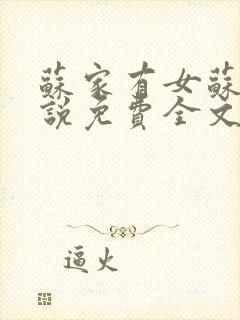 蘇家有女蘇
說免費全文
逼火